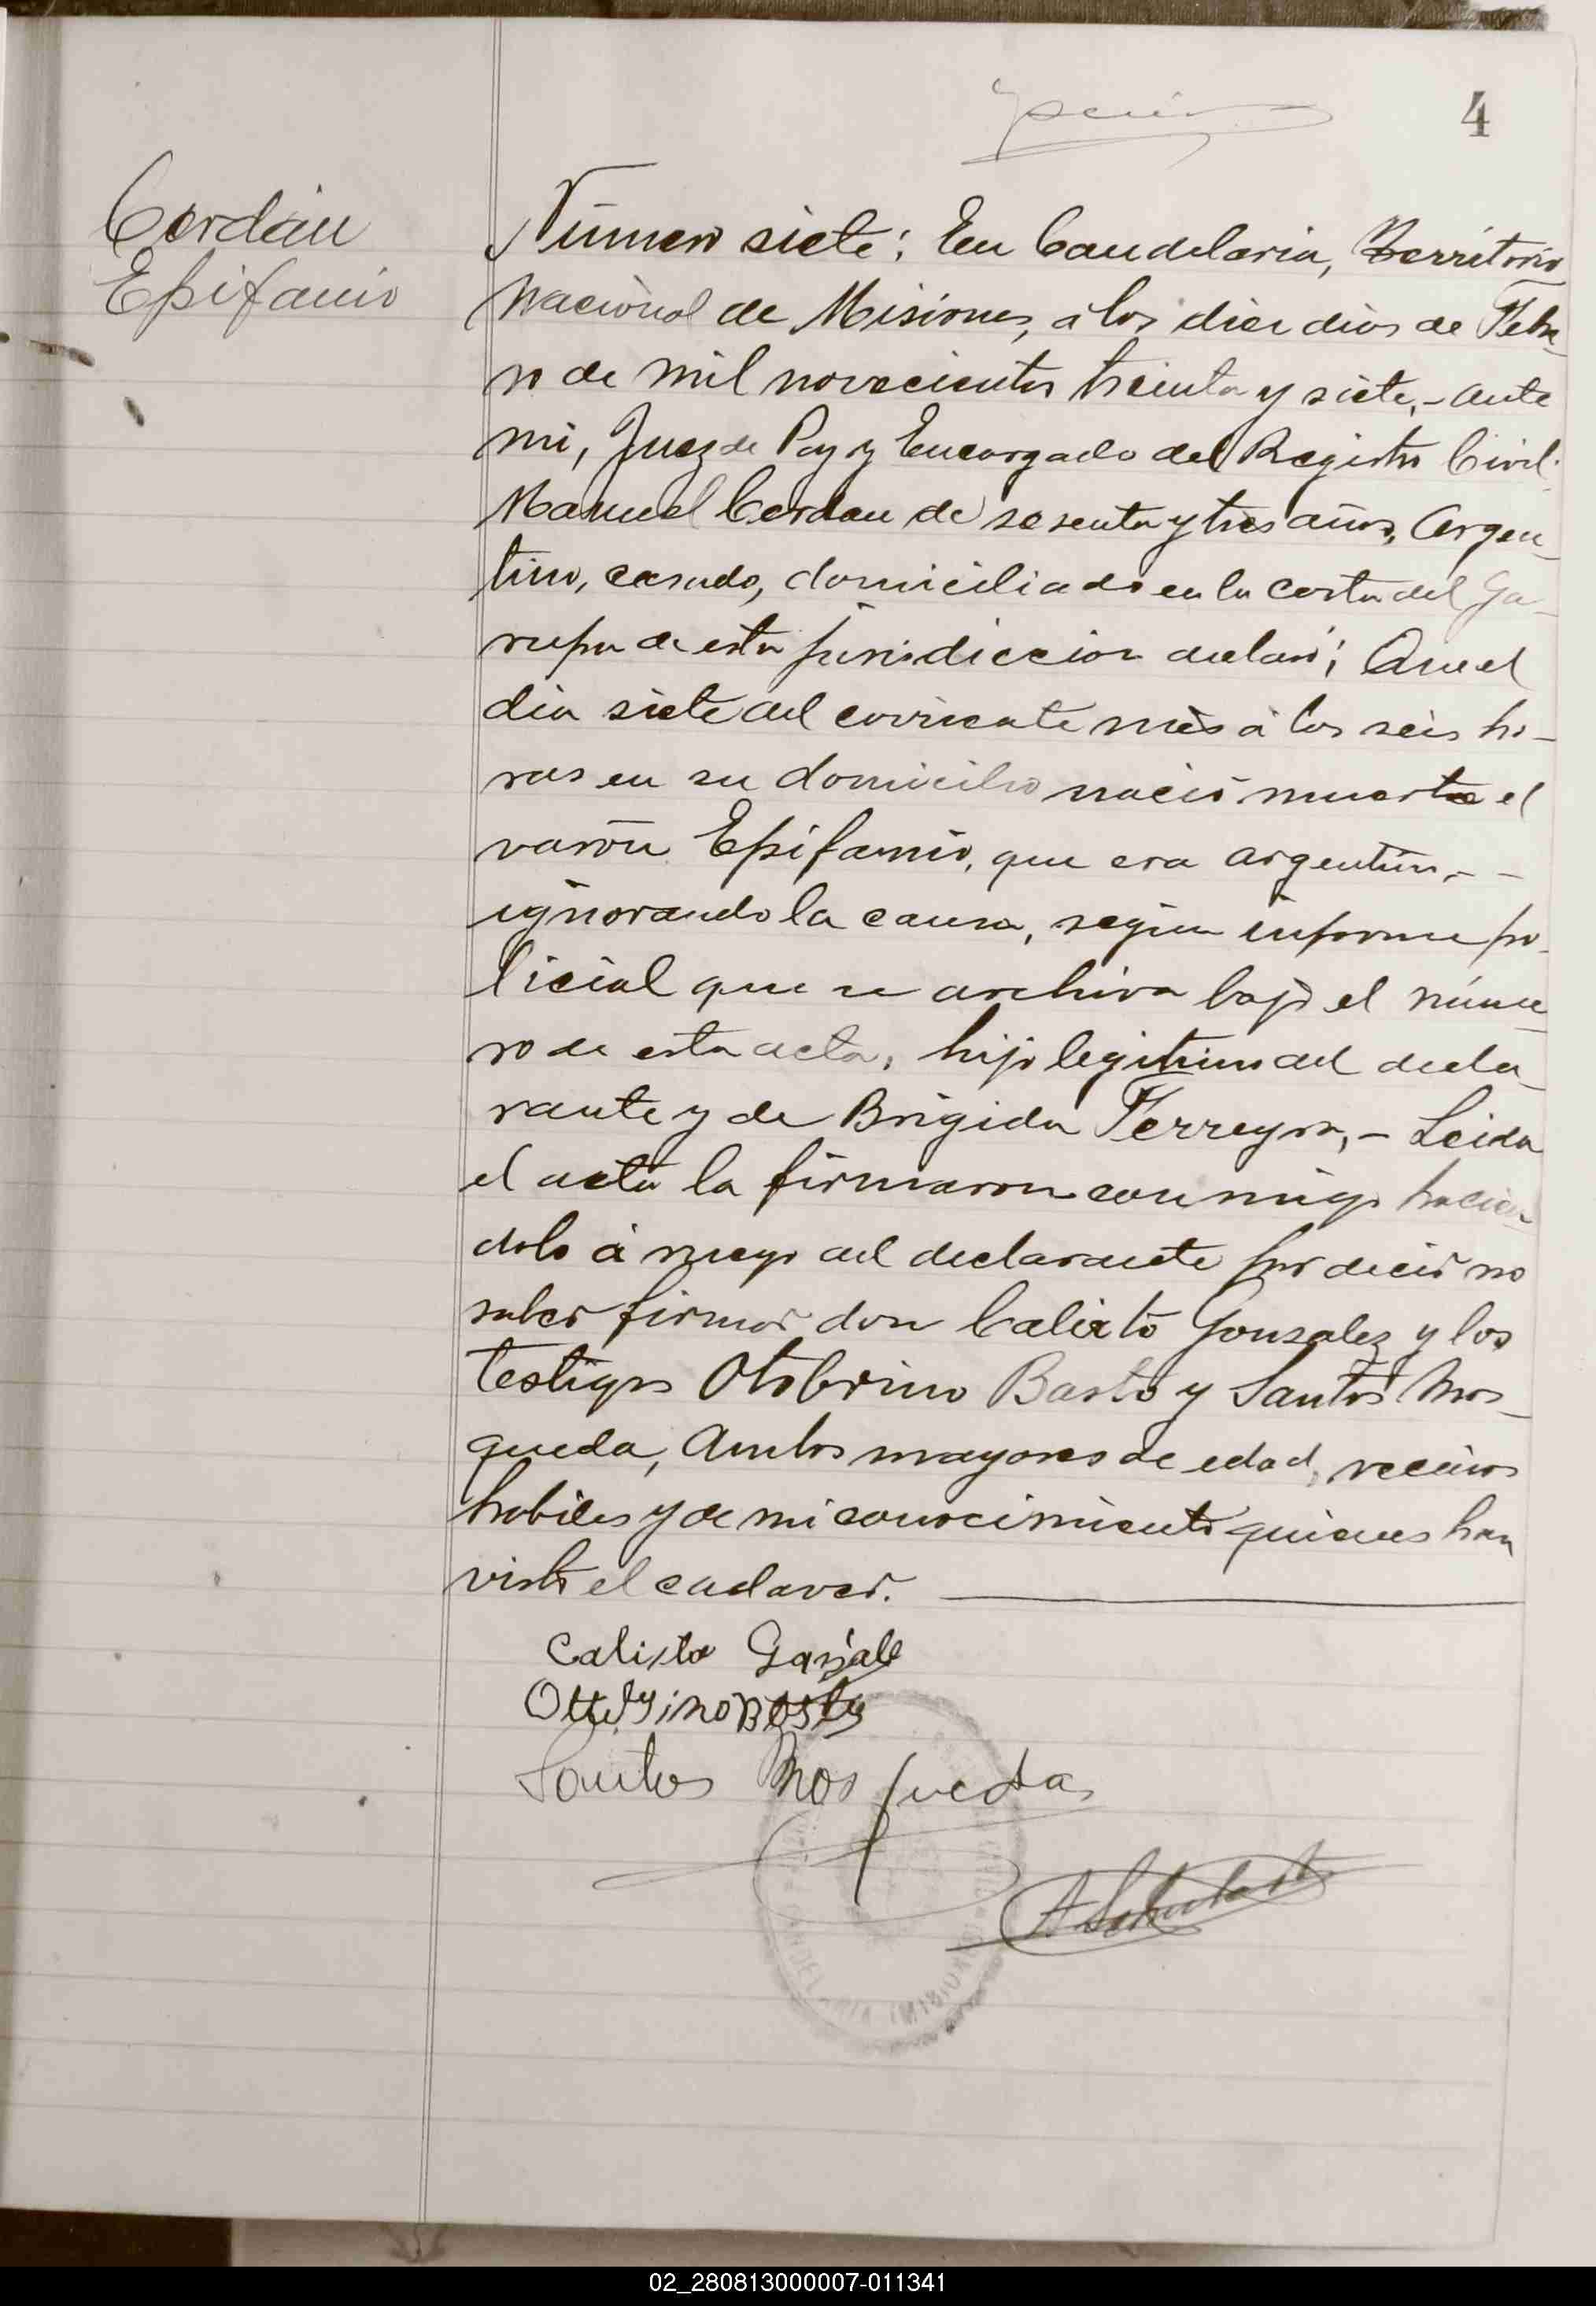 4
Cerdán
Epifanio
Número siete: En Candelaria, Territorio
Nacional de Misiones, á los diez dias de Febre
ro de mil novecientos treinta y siete,- ante
mi, Juez de Paz y Encargado del Registro Civil.
Manuel Cerdan de sesenta y tres años, Argen
tino, casado, domiciliado en la costa del Ga-
rupa de esta jurisdiccion declaró; Que el
dia siete del corriente mes á las seis ho-
ras en su domicilio nació muerto el
varón Epifanio, que era argentino, - -
ignorando la causa, según informe po-
licial que se archiva bajo el núme
ro de esta acta, hijo legitimo del decla
rante y de Brigida Ferreyra,- Leida
el acta la firmaron conmigo hacien
dolo á ruego del declarante por decir no
saber firmar don Calixto Gonzalez y los
testigos Otobrino Basto y Santos Mos-
queda, Ambos mayores de edad, vecinos
habiles y de mi conocimiento quienes han
visto el cadaver.
Calisto Gansale
Santos Mosqueda